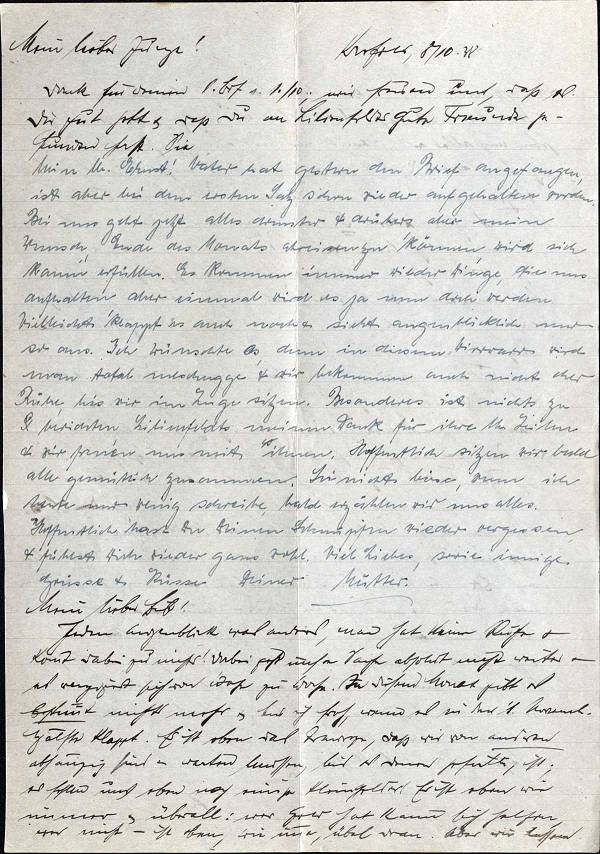 Mein lieber Junge! Krefeld, 8/10.38
Dank für deinen l. Brf v. 1./10., wir freuen uns, daß es
Dir gut geht & daß Du an Lilienfelds gute Freunde ge-
funden hast. Die
Mein lb. Ernst! Vater hat gestern den Brief angefangen,
ist aber bei dem ersten Satz schon wieder aufgehalten worden.
Bei uns geht jetzt alles drunter & drüber, aber mein
Wunsch, Ende des Monats abreisen zu können wird sich
kaum erfüllen. Es kommen immer wieder Dinge, die uns
aufhalten aber einmal wird es ja nun doch werden.
Vielleicht klappt es auch noch & sieht augenblicklich nur
so aus. Ich wünschte es denn in diesem Wirrwarr wird
man total meschugge & wir bekommen auch nicht eher
Ruhe, bis wir im Zuge sitzen. Besonderes ist nichts zu
berichten. Lilienfelds meinen Dank für ihre lb. Zeilen
& wir freuen uns mit ihnen. Hoffentlich sitzen wir bald
alle gemütlich zusammen. Sei nicht böse, wenn ich
heute nur wenig schreibe, bald erzählen wir uns alles.
Hoffentlich hast Du Deinen Schnupfen wieder vergessen
& fühlst Dich wieder ganz wohl. Viel Liebes, sowie innige
Grüsse & Küsse Deiner Mutter.
Mein lieber
Jeden Augenblick was anderes, man hat keine Ruhe &
kommt dabei zu nichts! Dabei geht unsere Sache absolut nicht weiter &
es verzögert sich von Woche zu Woche. In diesem Monat geht es
bestimmt nicht mehr & bin ich froh wenn es in der 1. Novemb.
hälfte klappt. Es ist eben das Traurige, daß wir von anderen
abhängig sind & warten müssen, bis es denen gefällt, ist,
es fehlen uns eben noch einige Kleinigkeiten. Es ist eben wie
immer & überall: wer Geld hat kann sich helfen
wer nicht – ist eben, wie immer, übel dran. Aber wir lassen